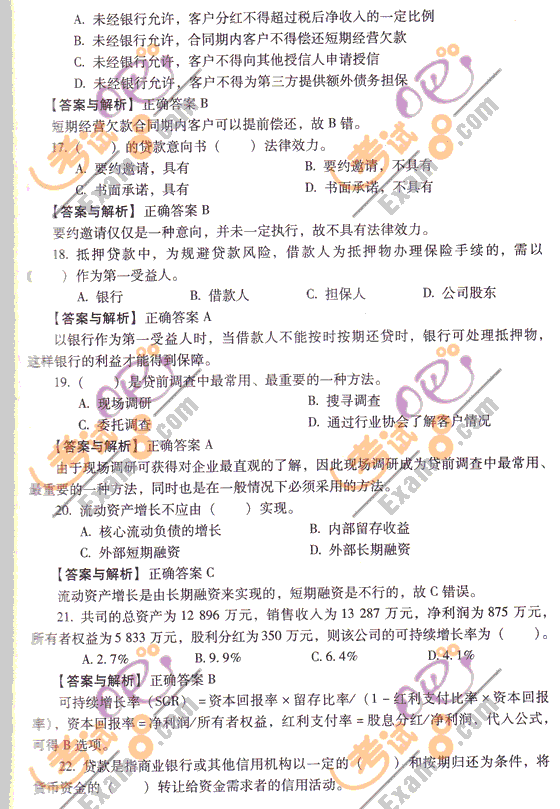 A. 未经银行允许，客户分红不得超过税后净收入的一定比例
B. 未经银行允许，合同期内客户不得偿还短期经营欠款
C. 未经银行允许，客户不得向其他授信人申请授信
D. 未经银行允许，客户不得为第三方提供额外债务担保
【答案与解析】正确答案 B
短期经营欠款合同期内客户可以提前偿还，故 B 错。
17.（　　）的贷款意向书（　　）法律效力。
A. 要约邀请，具有　　B. 要约邀请，不具有
C. 书面承诺，具有　　D. 书面承诺，不具有
【答案与解析】正确答案 B
要约邀请仅仅是一种意向，并未一定执行，故不具有法律效力。
18. 抵押贷款中，为规避贷款风险，借款人为抵押物办理保险手续的，需以
（　　）作为第一受益人。
A. 银行　　B. 借款人　　C. 担保人　　D. 公司股东
【答案与解析】正确答案 A
以银行作为第一受益人时，当借款人不能按时按期还贷时，银行可处理抵押物，
这样银行的利益才能得到保障。
19.（　　）是贷前调查中最常用、最重要的一种方法。
A. 现场调研　　B. 搜寻调查
C. 委托调查　　D. 通过行业协会了解客户情况
【答案与解析】正确答案 A
由于现场调研可获得对企业最直观的了解，因此现场调研成为贷前调查中最常用、
最重要的一种方法，同时也是在一般情况下必须采用的方法。
20. 流动资产增长不应由（　　）实现。
A. 核心流动负债的增长　　B. 内部留存收益
C. 外部短期融资　　D. 外部长期融资
【答案与解析】正确答案 C
流动资产增长是由长期融资来实现的，短期融资是不行的，故 C 错误。
21. 共司的总资产为 12 896 万元，销售收入为 13 287 万元，净利润为 875 万元，
所有者权益为 5 833 万元，股利分红为 350 万元，则该公司的可持续增长率为（　　）。
A. 2.7%　　B. 9.9%　　C. 6.4%　　D. 4.1%
【答案与解析】正确答案 B
可持续增长率（SGR）=资本回报率×留存比率/（1-红利支付比率×资本回报
率），资本回报率=净利润/所有者权益，红利支付率=股息分红/净利润，代入公式，
可得 B 选项。
22. 贷款是指商业银行或其他信用机构以一定的（　　）和按期归还为条件，将
货币资金的（　　）转让给资金需求者的信用活动。
考试吧
Exam8.com
考试吧
Exam8.com
考试吧
Exam8.com
考试吧
Exam8.com
考试吧
Exam8.com
考试吧
Exam8.com